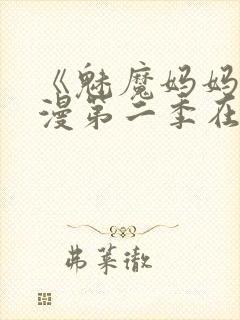 《魅魔妈妈
漫第二季在
弗莱澈